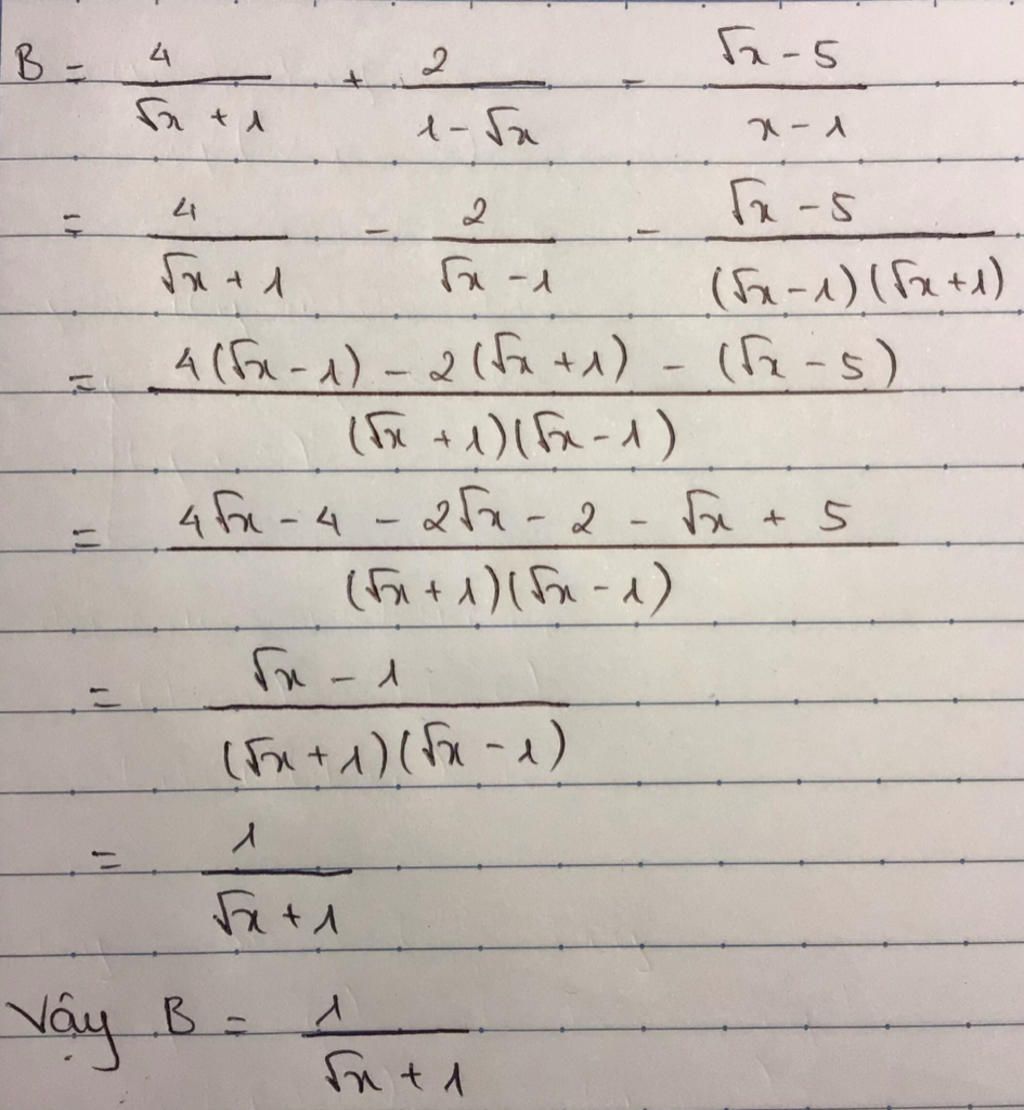 B = \frac{4}{\sqrt{x} + 1} + \frac{2}{1 - \sqrt{x}} - \frac{\sqrt{x} - 5}{x - 1}
= \frac{4}{\sqrt{x} + 1} - \frac{2}{\sqrt{x} - 1} - \frac{\sqrt{x} - 5}{(\sqrt{x} - 1)(\sqrt{x} + 1)}
= \frac{4(\sqrt{x} - 1) - 2(\sqrt{x} + 1) - (\sqrt{x} - 5)}{(\sqrt{x} + 1)(\sqrt{x} - 1)}
= \frac{4\sqrt{x} - 4 - 2\sqrt{x} - 2 - \sqrt{x} + 5}{(\sqrt{x} + 1)(\sqrt{x} - 1)}
= \frac{\sqrt{x} - 1}{(\sqrt{x} + 1)(\sqrt{x} - 1)}
= \frac{1}{\sqrt{x} + 1}
Vậy B = \frac{1}{\sqrt{x} + 1}